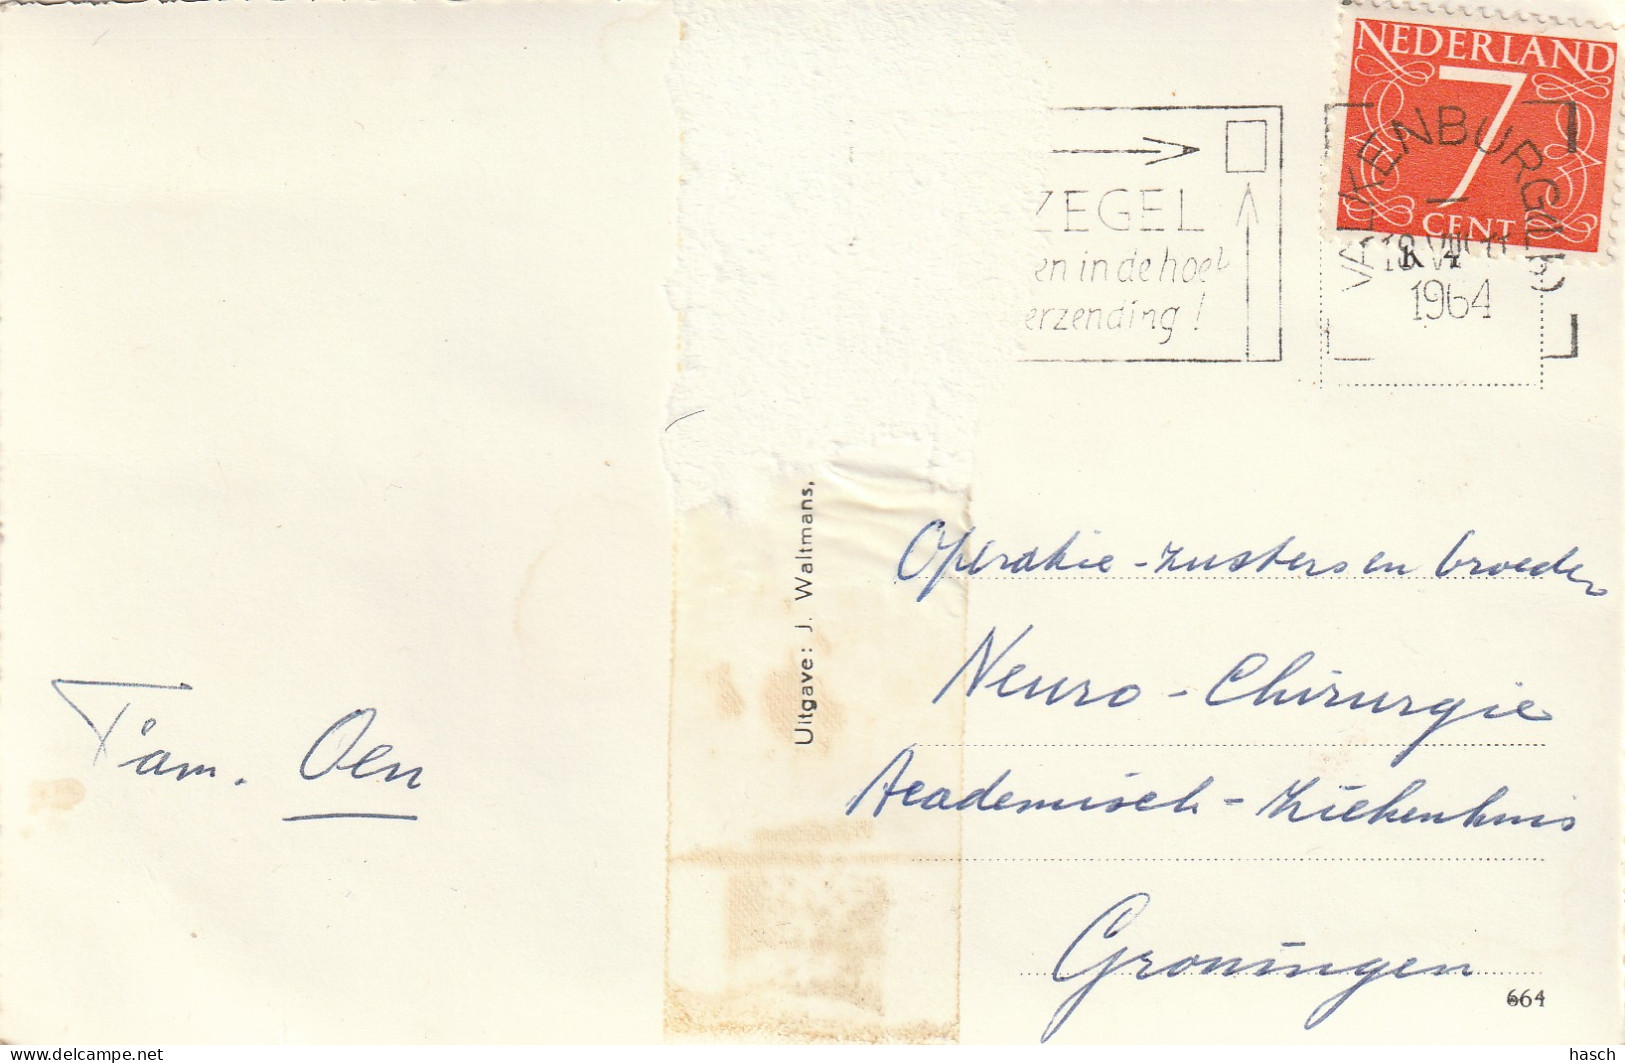 NEDERLAND
7
CENT
VALKENBURG (L.b)
1964
ZEGEL
en in de hoek
erzending!
Uitgave: J. Waltmans,
Operatie-zusters en broeder
Neuro-Chirurgie
Academisch-Ziekenhuis
Groningen
Fam. Oen
664
delcampe.net
hasch